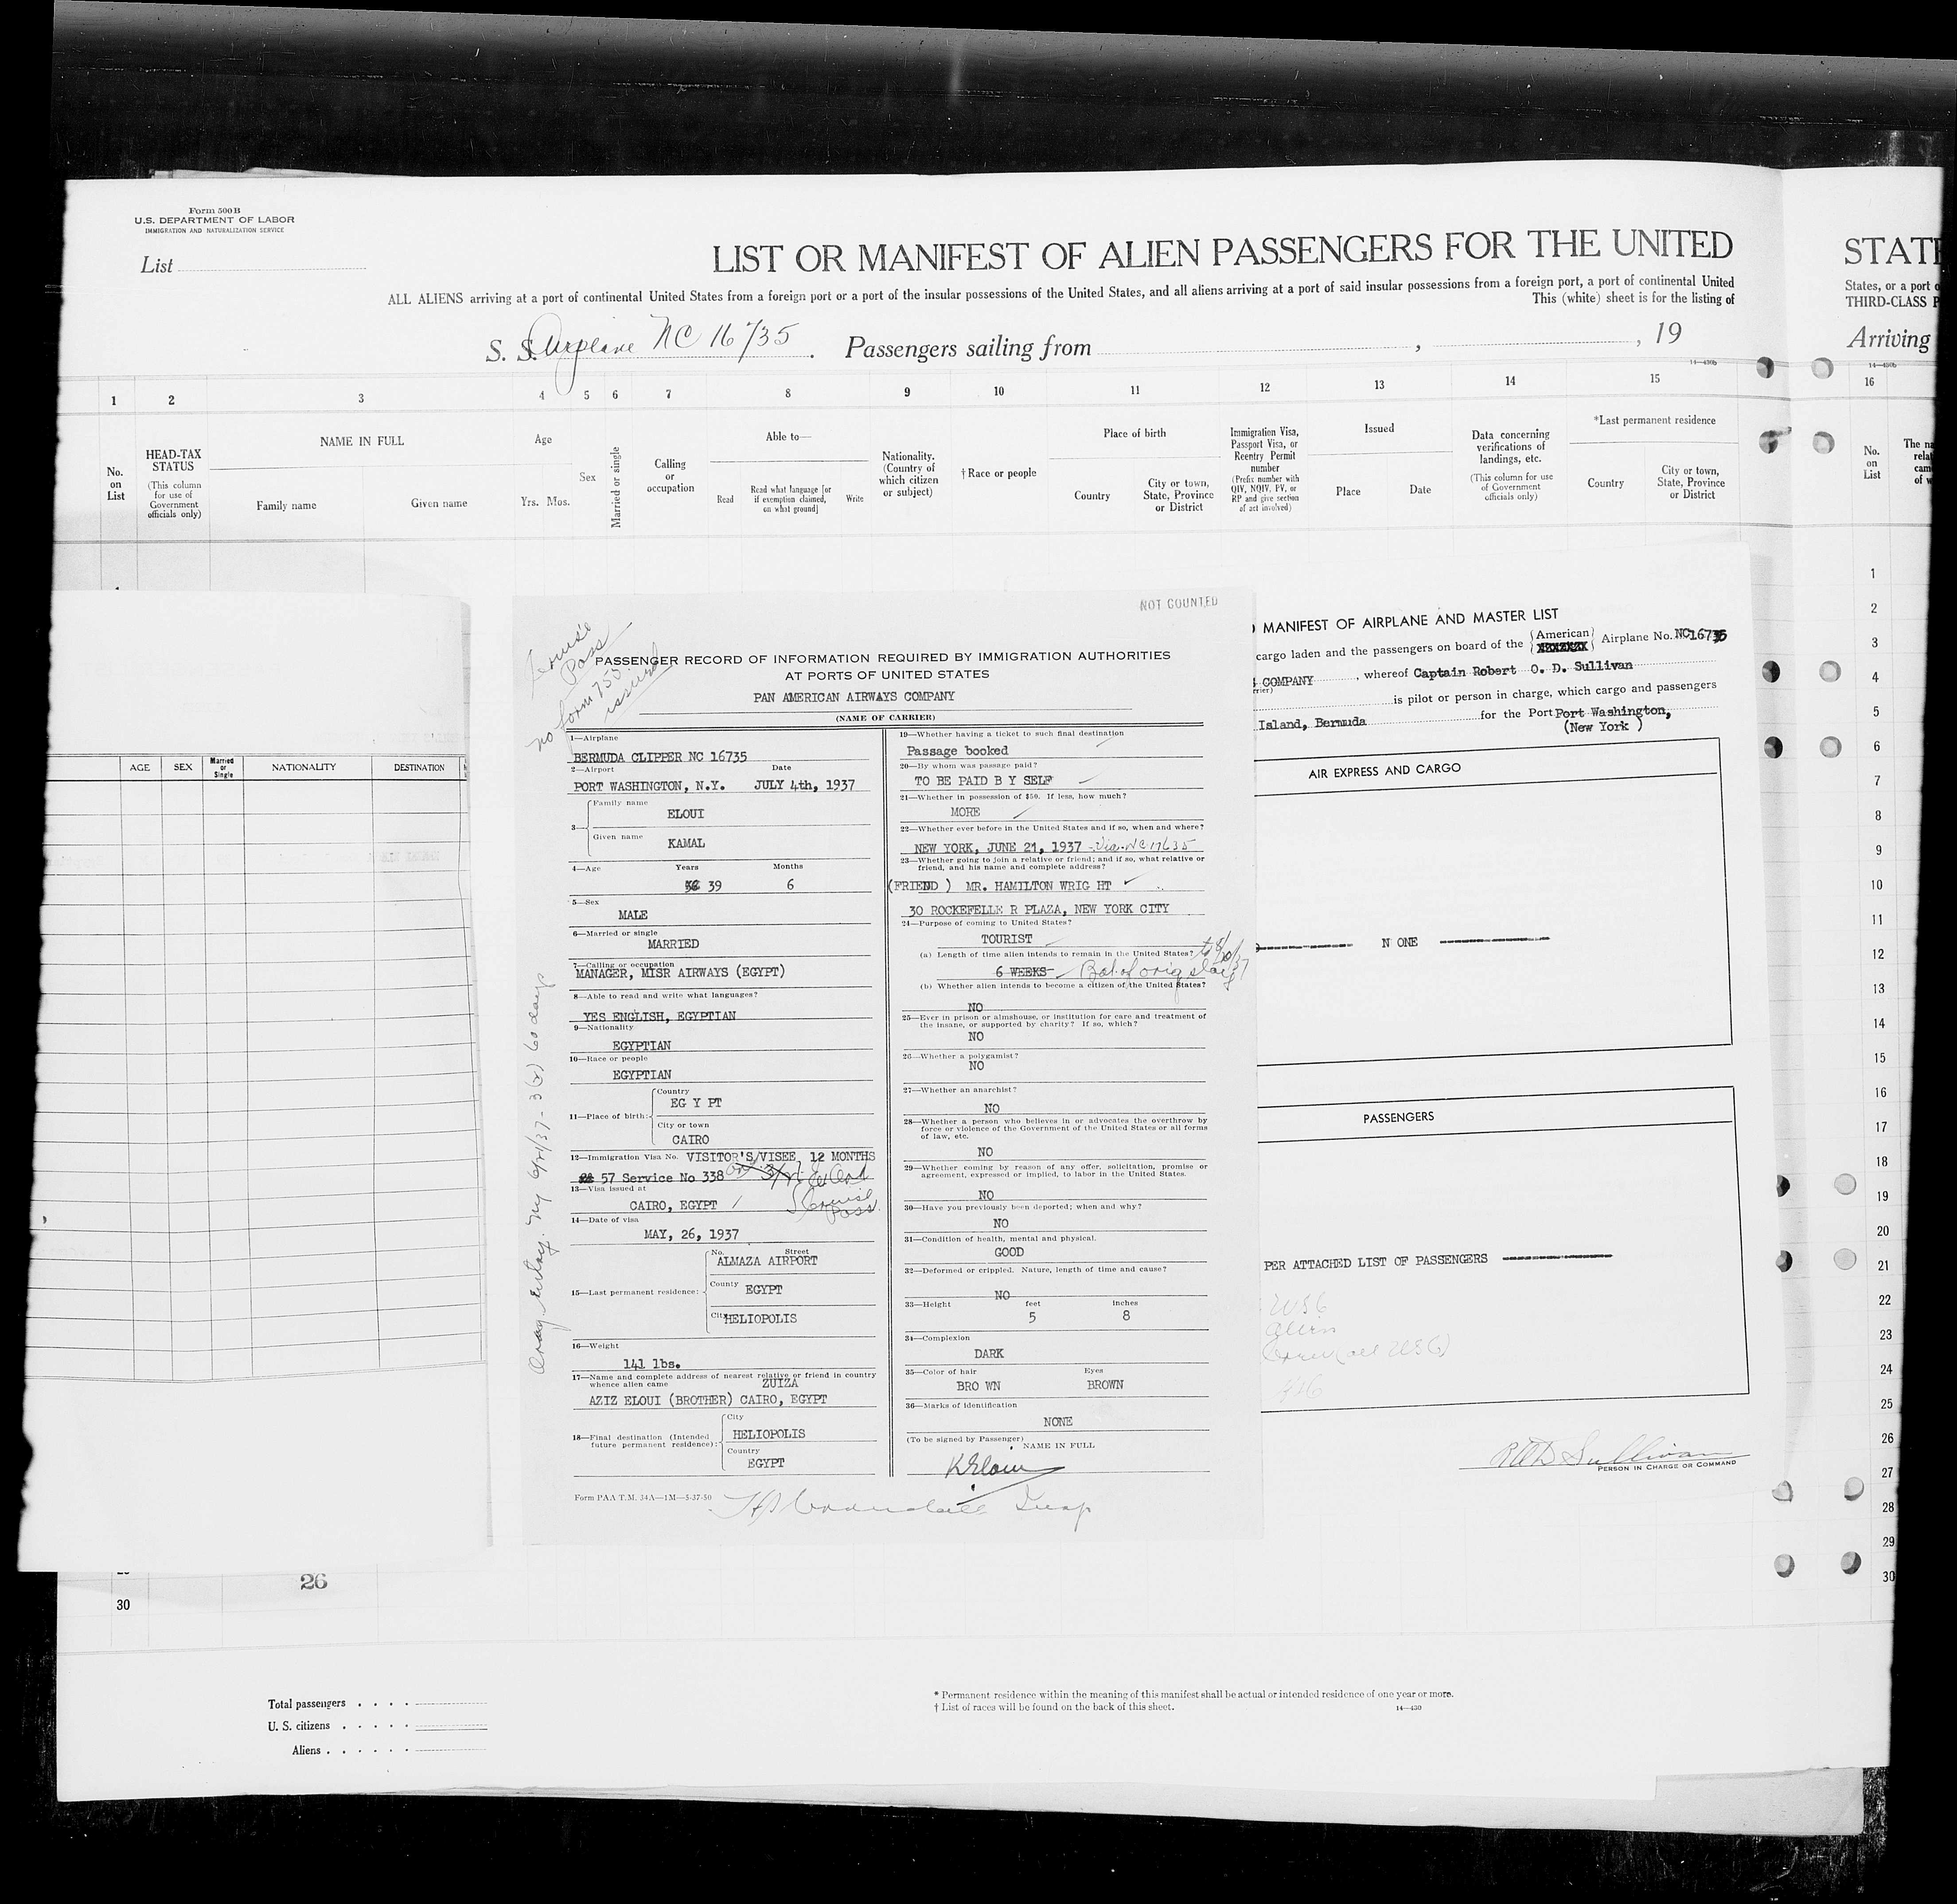 Form 500 B
U.S. DEPARTMENT OF LABOR
IMMIGRATION AND NATURALIZATION SERVICE
List
LIST OR MANIFEST OF ALIEN PASSENGERS FOR THE UNITED
ALL ALIENS arriving at a port of continental United States from a foreign port or a port of the insular possessions of the United States, and all aliens arriving at a port of said insular possessions from a foreign port, a port of continental United
This (white) sheet is for the listing of
S. S. Airplane NC 16735. Passengers sailing from , , 19
14—430b
STATE
States, or a port o
THIRD-CLASS P
Arriving
14—430b
1 2 3 4 5 6 7 8 9 10 11 12 13 14 15 16
No. on List
HEAD-TAX STATUS
(This column for use of Government officials only)
NAME IN FULL
Family name
Given name
Age
Yrs. Mos.
Sex
Married or single
Calling or occupation
Able to—
Read
Read what language [or if exemption claimed, on what ground]
Write
Nationality. (Country of which citizen or subject)
† Race or people
Place of birth
Country
City or town, State, Province or District
Immigration Visa, Passport Visa, or Reentry Permit number
(Prefix number with QIV, NQIV, PV, or RP and give section of act involved)
Issued
Place
Date
Data concerning verifications of landings, etc.
(This column for use of Government officials only)
*Last permanent residence
Country
City or town, State, Province or District
No. on List
The na
relat
cam
of w
AGE
SEX
Married or Single
NATIONALITY
DESTINATION
NOT COUNTED
Pass
no form 755
issued
PASSENGER RECORD OF INFORMATION REQUIRED BY IMMIGRATION AUTHORITIES
AT PORTS OF UNITED STATES
PAN AMERICAN AIRWAYS COMPANY
(NAME OF CARRIER)
1—Airplane
BERMUDA CLIPPER NC 16735
2—Airport Date
PORT WASHINGTON, N.Y. JULY 4th, 1937
3—
Family name
ELOUI
Given name
KAMAL
4—Age Years Months
39 6
5—Sex
MALE
6—Married or single
MARRIED
7—Calling or occupation
MANAGER, MISR AIRWAYS (EGYPT)
8—Able to read and write what languages?
YES ENGLISH, EGYPTIAN
9—Nationality
EGYPTIAN
10—Race or people
EGYPTIAN
11—Place of birth:
Country
EG Y PT
City or town
CAIRO
12—Immigration Visa No. VISITOR'S/VISEE, 12 MONTHS
57 Service No 338
13—Visa issued at
CAIRO, EGYPT /
14—Date of visa
MAY, 26, 1937
15—Last permanent residence:
No. Street
ALMAZA AIRPORT
County
EGYPT
City
HELIOPOLIS
16—Weight
141 lbs.
17—Name and complete address of nearest relative or friend in country
whence alien came ZUIZA
AZIZ ELOUI (BROTHER) CAIRO, EGYPT
18—Final destination (Intended future permanent residence):
City
HELIOPOLIS
Country
EGYPT
Form PAA T.M. 34A—1M—5-37-50
19—Whether having a ticket to such final destination
Passage booked
20—By whom was passage paid?
TO BE PAID B Y SELF
21—Whether in possession of $50. If less, how much?
MORE
22—Whether ever before in the United States and if so, when and where?
NEW YORK, JUNE 21, 1937 - Via. NC 17635
23—Whether going to join a relative or friend; and if so, what relative or
friend, and his name and complete address?
(FRIEND ) MR. HAMILTON WRIG HT
30 ROCKEFELLE R PLAZA, NEW YORK CITY
24—Purpose of coming to United States?
TOURIST
(a) Length of time alien intends to remain in the United States?
6 WEEKS Bal. of orig stay
(b) Whether alien intends to become a citizen of the United States?
NO
25—Ever in prison or almshouse, or institution for care and treatment of
the insane, or supported by charity? If so, which?
NO
26—Whether a polygamist?
NO
27—Whether an anarchist?
NO
28—Whether a person who believes in or advocates the overthrow by
force or violence of the Government of the United States or all forms
of law, etc.
NO
29—Whether coming by reason of any offer, solicitation, promise or
agreement, expressed or implied, to labor in the United States.
NO
30—Have you previously been deported; when and why?
NO
31—Condition of health, mental and physical.
GOOD
32—Deformed or crippled. Nature, length of time and cause?
NO
33—Height feet inches
5 8
34—Complexion
DARK
35—Color of hair Eyes
BRO WN BROWN
36—Marks of identification
NONE
(To be signed by Passenger)
NAME IN FULL
K Eloui
MANIFEST OF AIRPLANE AND MASTER LIST
cargo laden and the passengers on board of the American Airplane No. NC16735
COMPANY , whereof Captain Robert O. D. Sullivan
is pilot or person in charge, which cargo and passengers
Island, Bermuda for the Port Port Washington,
(New York )
AIR EXPRESS AND CARGO
N ONE
PASSENGERS
PER ATTACHED LIST OF PASSENGERS
ROD Sullivan
PERSON IN CHARGE OR COMMAND
1
2
3
4
5
6
7
8
9
10
11
12
13
14
15
16
17
18
19
20
21
22
23
24
25
26
27
28
29
30
26
30
Total passengers
U. S. citizens
Aliens
* Permanent residence within the meaning of this manifest shall be actual or intended residence of one year or more.
† List of races will be found on the back of this sheet.
14—430